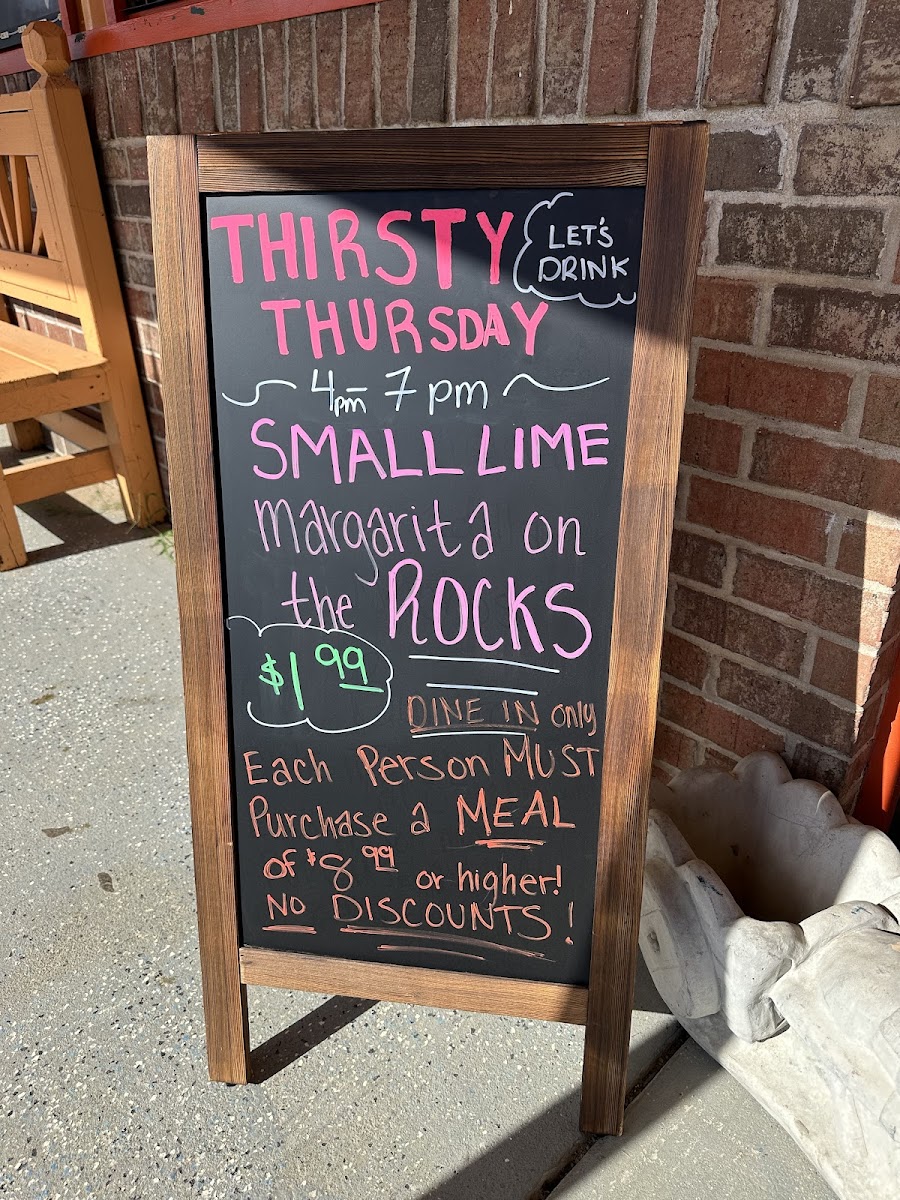 THIRSTY
LET'S
DRINK
THURSDAY
4pm - 7 pm
SMALL LIME
margarita on
the ROCKS
$1 99
DINE IN only
Each Person MUST
Purchase a MEAL
of $8 99 or higher!
NO DISCOUNTS!